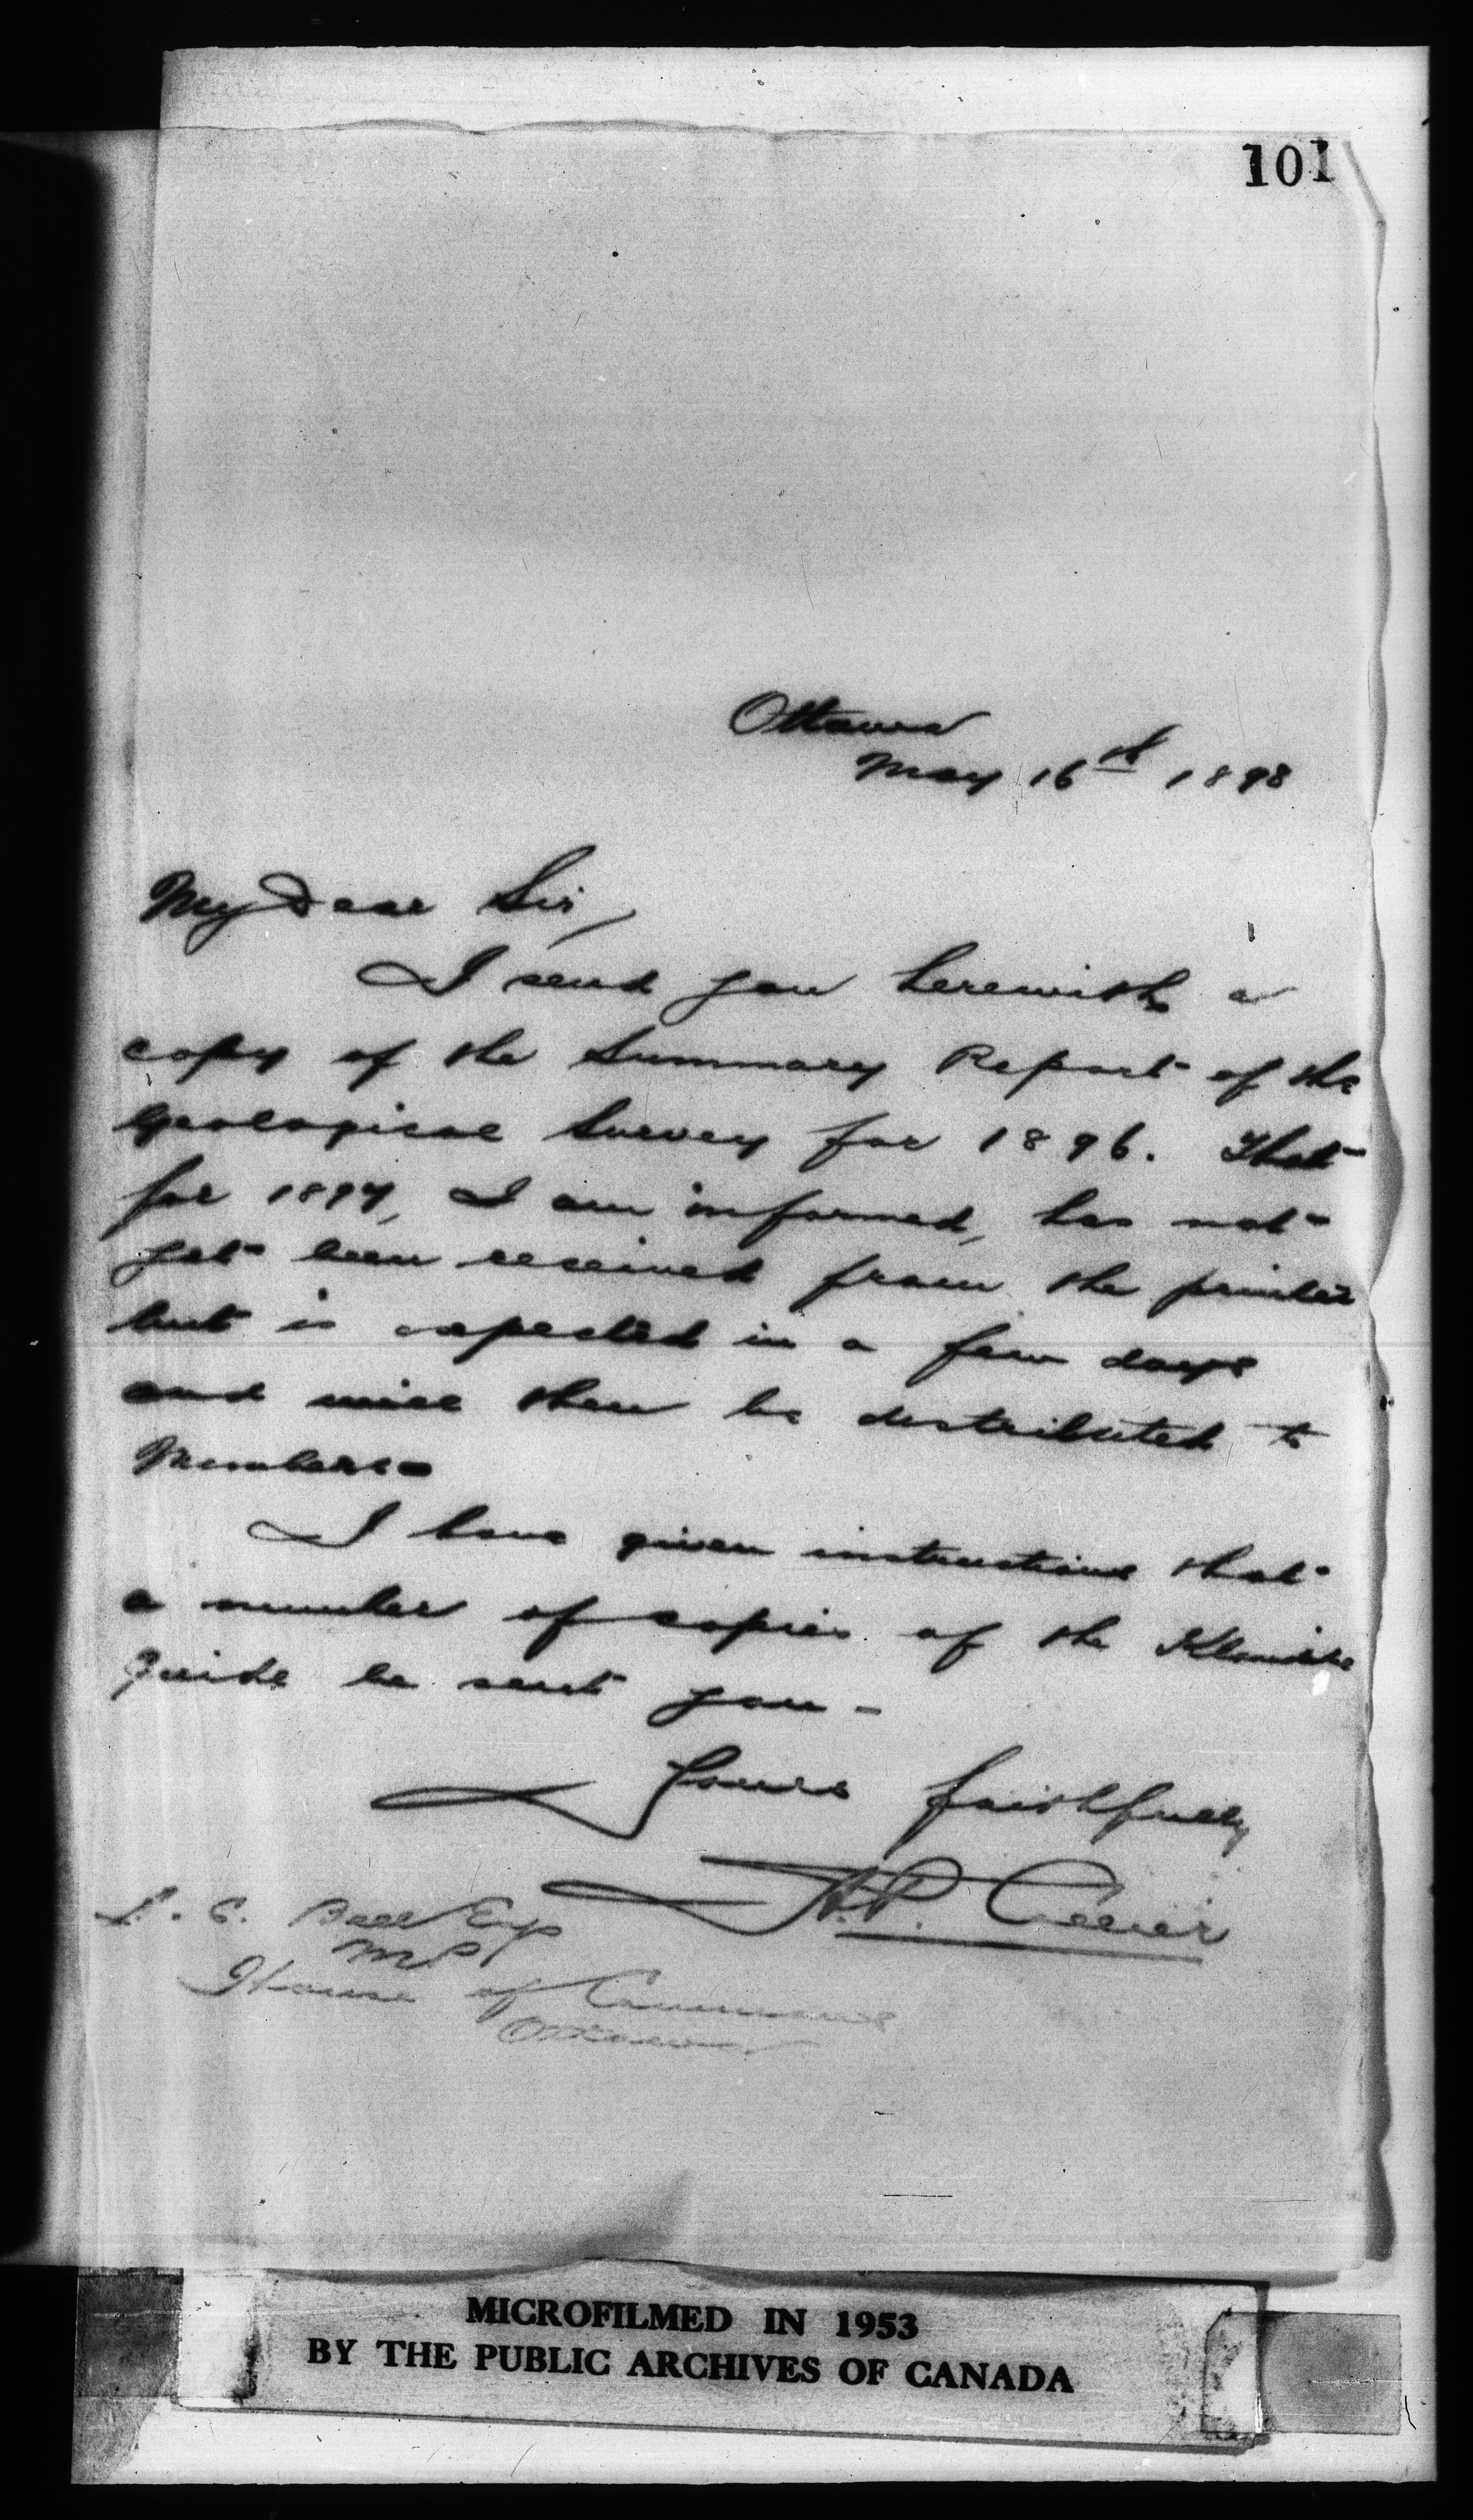 101
Ottawa
May 16th 1898
My Dear Sir,
I send you herewith a
copy of the Summary Report of the
Geological Survey for 1896. That
for 1897, I am informed, has not
yet been received from the printer
but is expected in a few days
and will then be distributed to
Members.
I have given instructions that
a number of copies of the Klondike
Guide be sent you -
Yours faithfully
A.P. Collier
Bell Esq
M.P.
House of Commons
Ottawa
MICROFILMED IN 1953
BY THE PUBLIC ARCHIVES OF CANADA